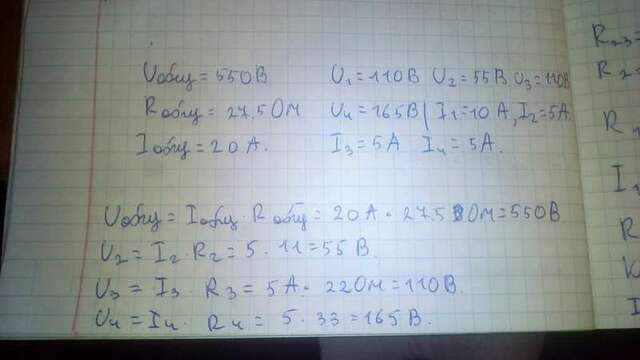 Uобщ = 550В U₁ = 110В U₂ = 55В U₃ = 110В
Rобщ = 27,5 Ом U₄ = 165В | I₁ = 10 А, I₂ = 5А.
Iобщ = 20 А. I₃ = 5А I₄ = 5А.
Uобщ = Iобщ · Rобщ = 20 А · 27,5 Ом = 550В.
U₂ = I₂ · R₂ = 5 · 11 = 55 В.
U₃ = I₃ · R₃ = 5А · 22Ом = 110В.
U₄ = I₄ · R₄ = 5 · 33 = 165В.
R₂₃ =
R₂ =
R
I
R
I